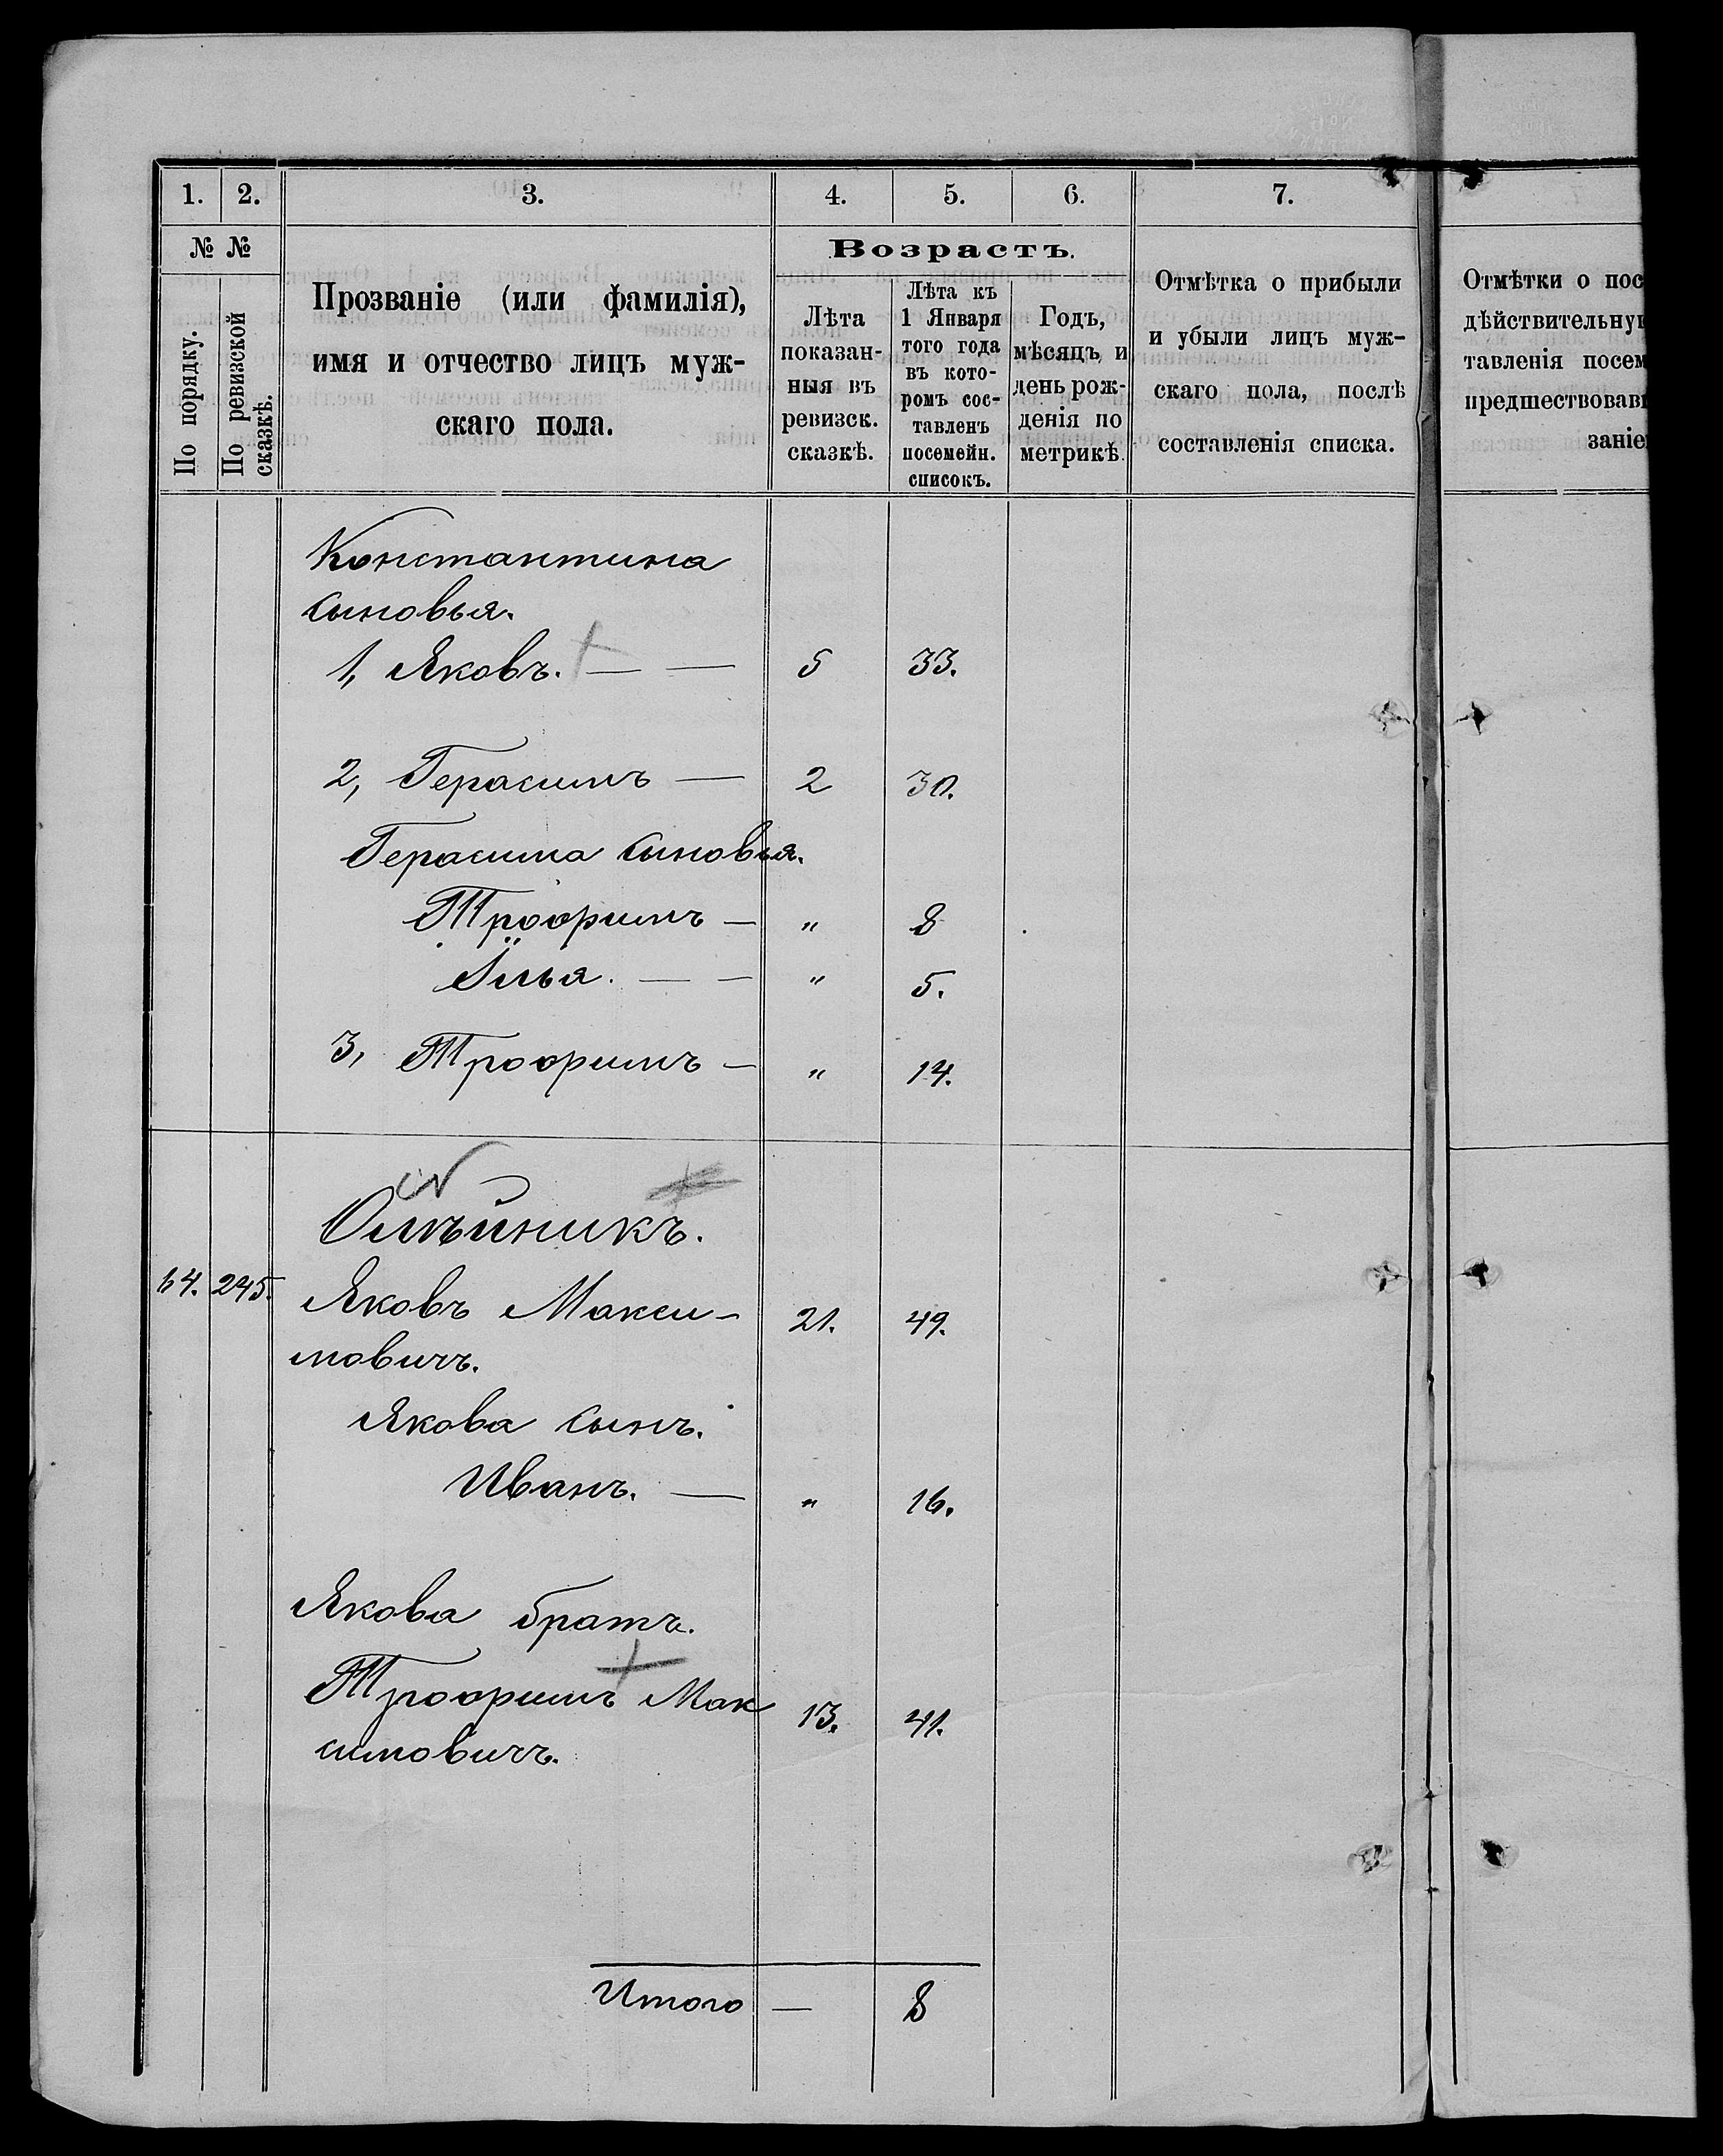 1. 2. 3. 4. 5. 6. 7.
№ №
По порядку.
По ревизской сказкѣ.
Прозваніе (или фамилія),
имя и отчество лицъ муж-
скаго пола.
Возрастъ.
Лѣта
показан-
ныя въ
ревизск.
сказкѣ.
Лѣта къ
1 Января
того года
въ кото-
ромъ сос-
тавленъ
посемейн.
списокъ.
Годъ,
мѣсяцъ и
день рож-
денія по
метрикѣ.
Отмѣтка о прибыли
и убыли лицъ муж-
скаго пола, послѣ
составленія списка.
Отмѣтки о пос
дѣйствительную
тавленія посем
предшествовав
заніе
Константина
сыновья.
1, Яковъ. — — 5 33.
2, Герасимъ — 2 30.
Герасима сыновья.
Трофимъ — " 8
Илья. — — " 5.
3, Трофимъ — " 14.
Олѣйникъ.
64. 245. Яковъ Макси- 21. 49.
мовичъ.
Якова сынъ.
Иванъ. — " 16.
Якова братъ.
Трофимъ Мак 13. 41.
симовичъ.
Итого — 8